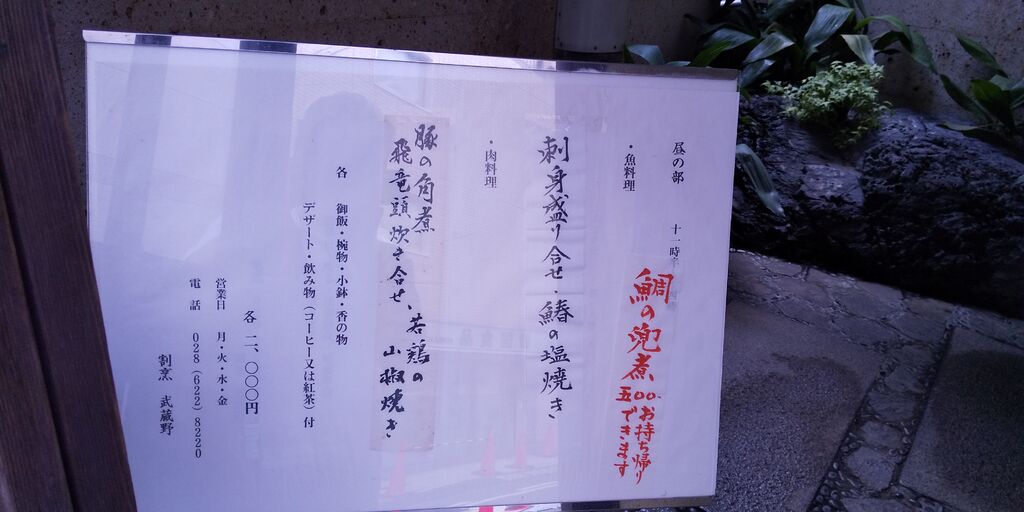 昼の部　十一時
鯛の兜煮
五〇〇お持ち帰り
できます
・魚料理
刺身盛り合せ、鰆の塩焼き
・肉料理
豚の角煮
飛竜頭炊き合せ、若鶏の
山椒焼き
各　御飯・椀物・小鉢・香の物
デザート・飲み物（コーヒー又は紅茶）付
各　二、〇〇〇円
営業日　月・火・水・金
電話　028（622）8220
割烹　武蔵野